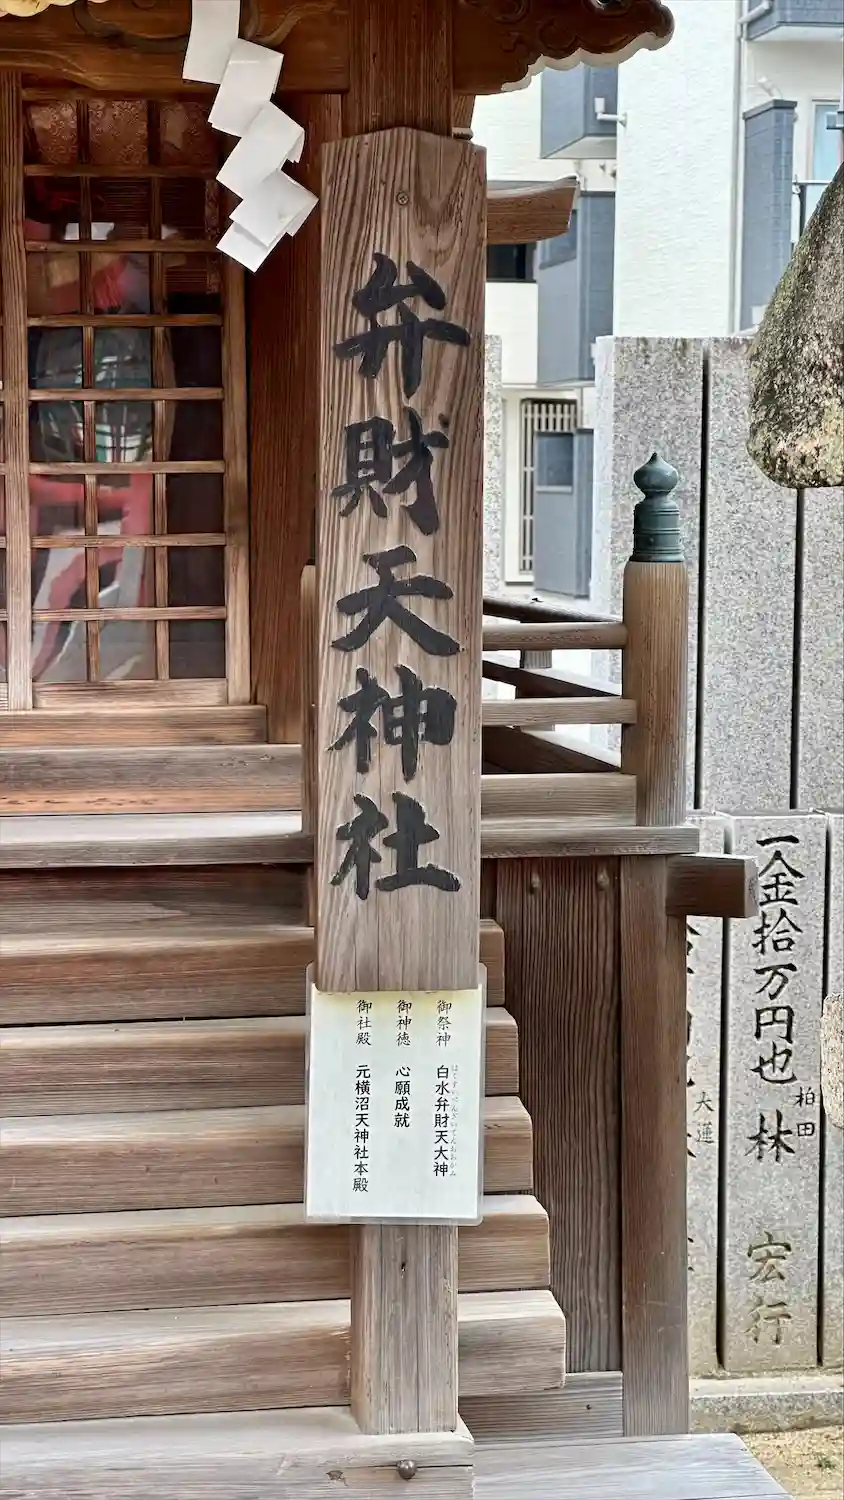 弁財天神社
御祭神 白水弁財天大神
はくすいべんざいてんおおかみ
御神徳 心願成就
御社殿 元横沼天神社本殿
一金拾万円也
柏田
林 宏行
大蓮